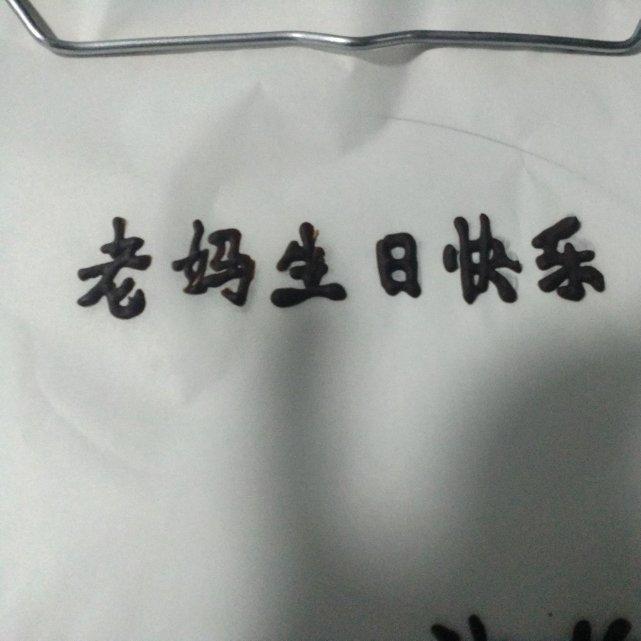 老妈生日快乐